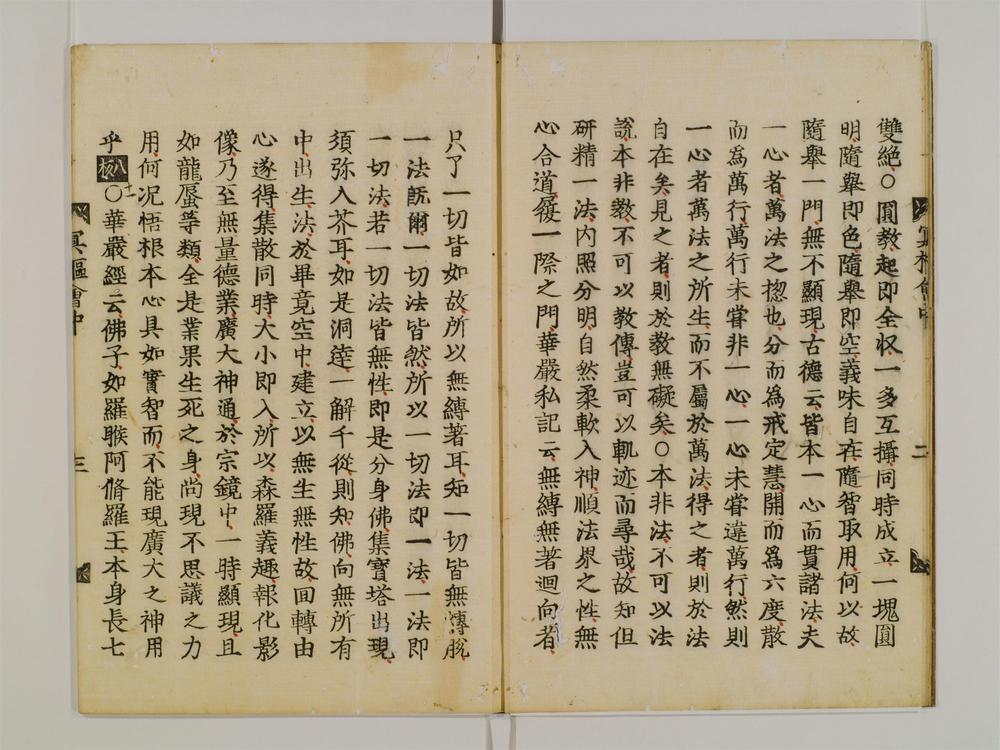 雙絶○圓教起即全収一多互攝同時成立一塊圓
明隨舉即色隨舉即空義味自在隨智取用何以故
隨舉一門無不顯現古德云皆本一心而貫諸法夫
一心者萬法之揔也分而爲戒定慧開而爲六度散
而爲萬行萬行未嘗非一心一心未嘗違萬行然則
一心者萬法之所生而不屬於萬法得之者則於法
自在矣見之者則於教無礙矣○本非法不可以法
說本非教不可以教傳豈可以軌迹而尋哉故知但
研精一法內照分明自然柔軟入神順法界之性無
心合道履一際之門華嚴私記云無縛無著迴向者
只了一切皆如故所以無縛著耳知一切皆無縛脫
一法旣爾一切法皆然所以一切法即一法一法即
一切法若一切法皆無性即是分身佛集寶塔出現
須弥入芥耳如是洞達一解千從則知佛向無所有
中出生法於畢竟空中建立以無生無性故回轉由
心遂得集散同時大小即入所以森羅義趣報化影
像乃至無量德業廣大神通於宗鏡中一時顯現且
如龍蜃等類全是業果生死之身尚現不思議之力
用何况悟根本心具如實智而不能現廣大之神用
乎○華嚴經云佛子如羅睺阿脩羅王本身長七
冥樞會中
二
冥樞會中
三